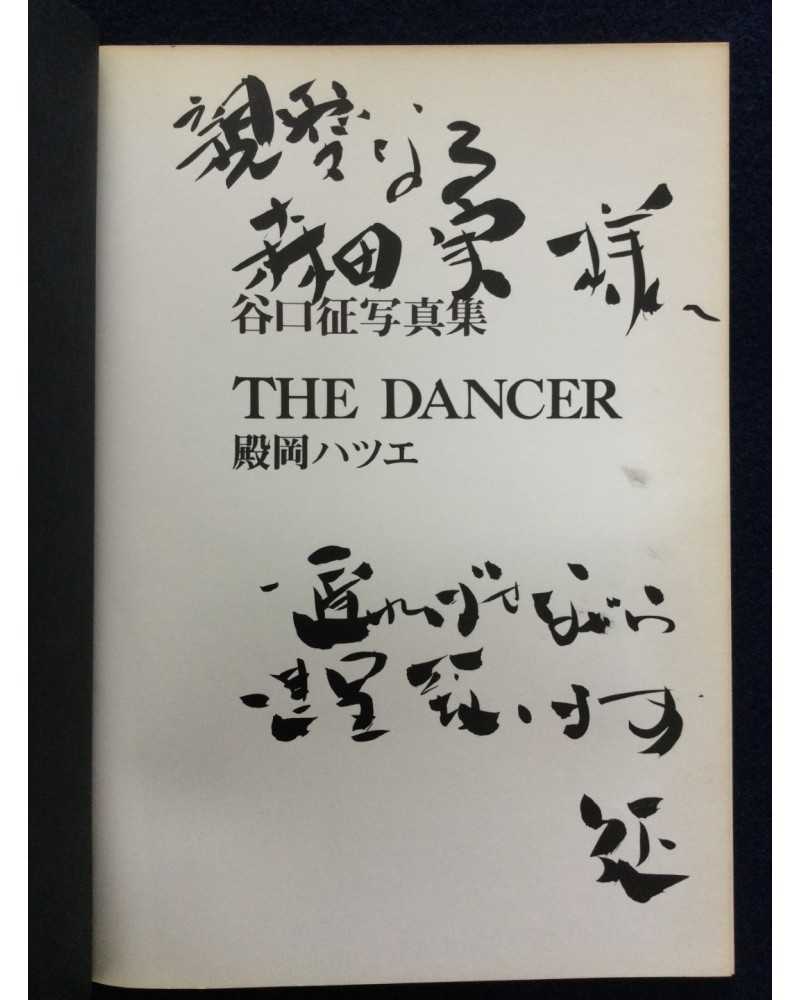 親愛なる
森田実様へ
谷口征写真集
THE DANCER
殿岡ハツエ
遅ればせながら
進呈致します
征